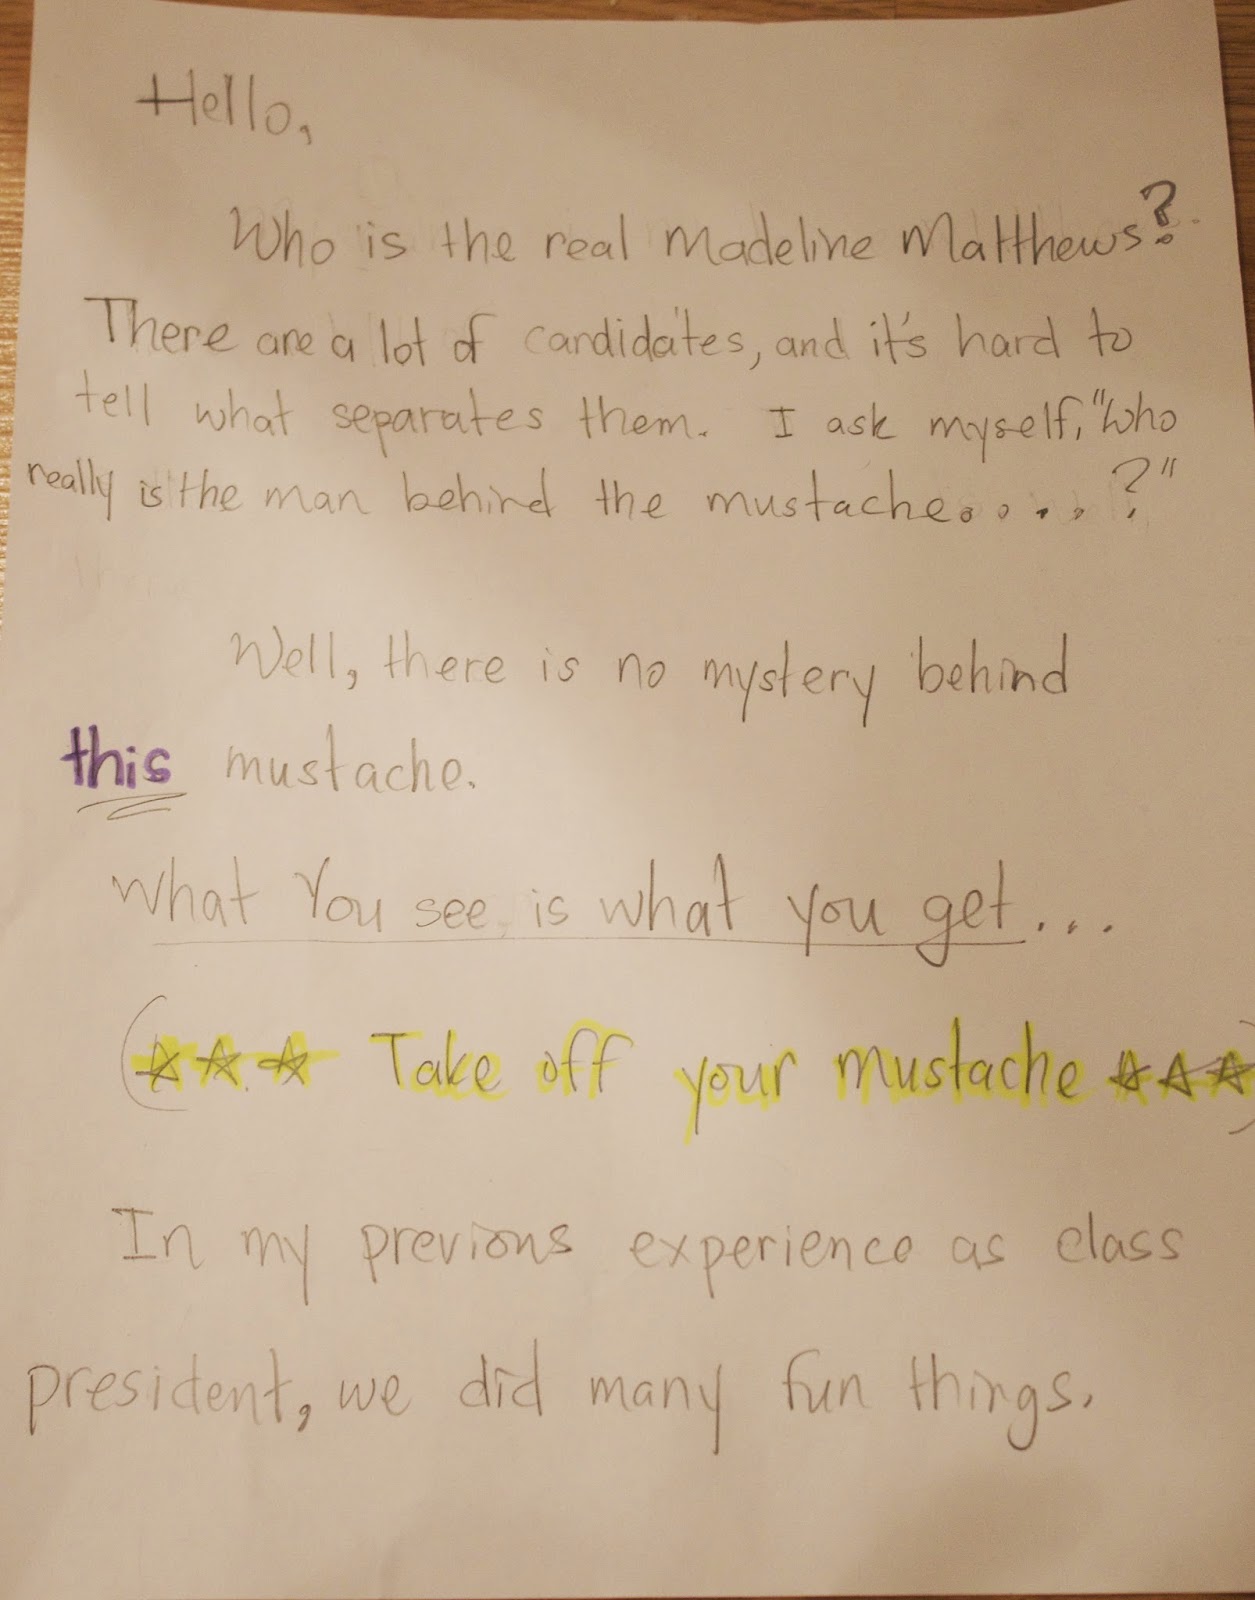 Hello,
Who is the real Madeline Matthews?
There are a lot of candidates, and it's hard to
tell what separates them. I ask myself, "who
really is the man behind the mustache....?"
Well, there is no mystery behind
this mustache.
What You see is what you get...
(☆☆☆ Take off your mustache ☆☆☆)
In my previous experience as class
president, we did many fun things.